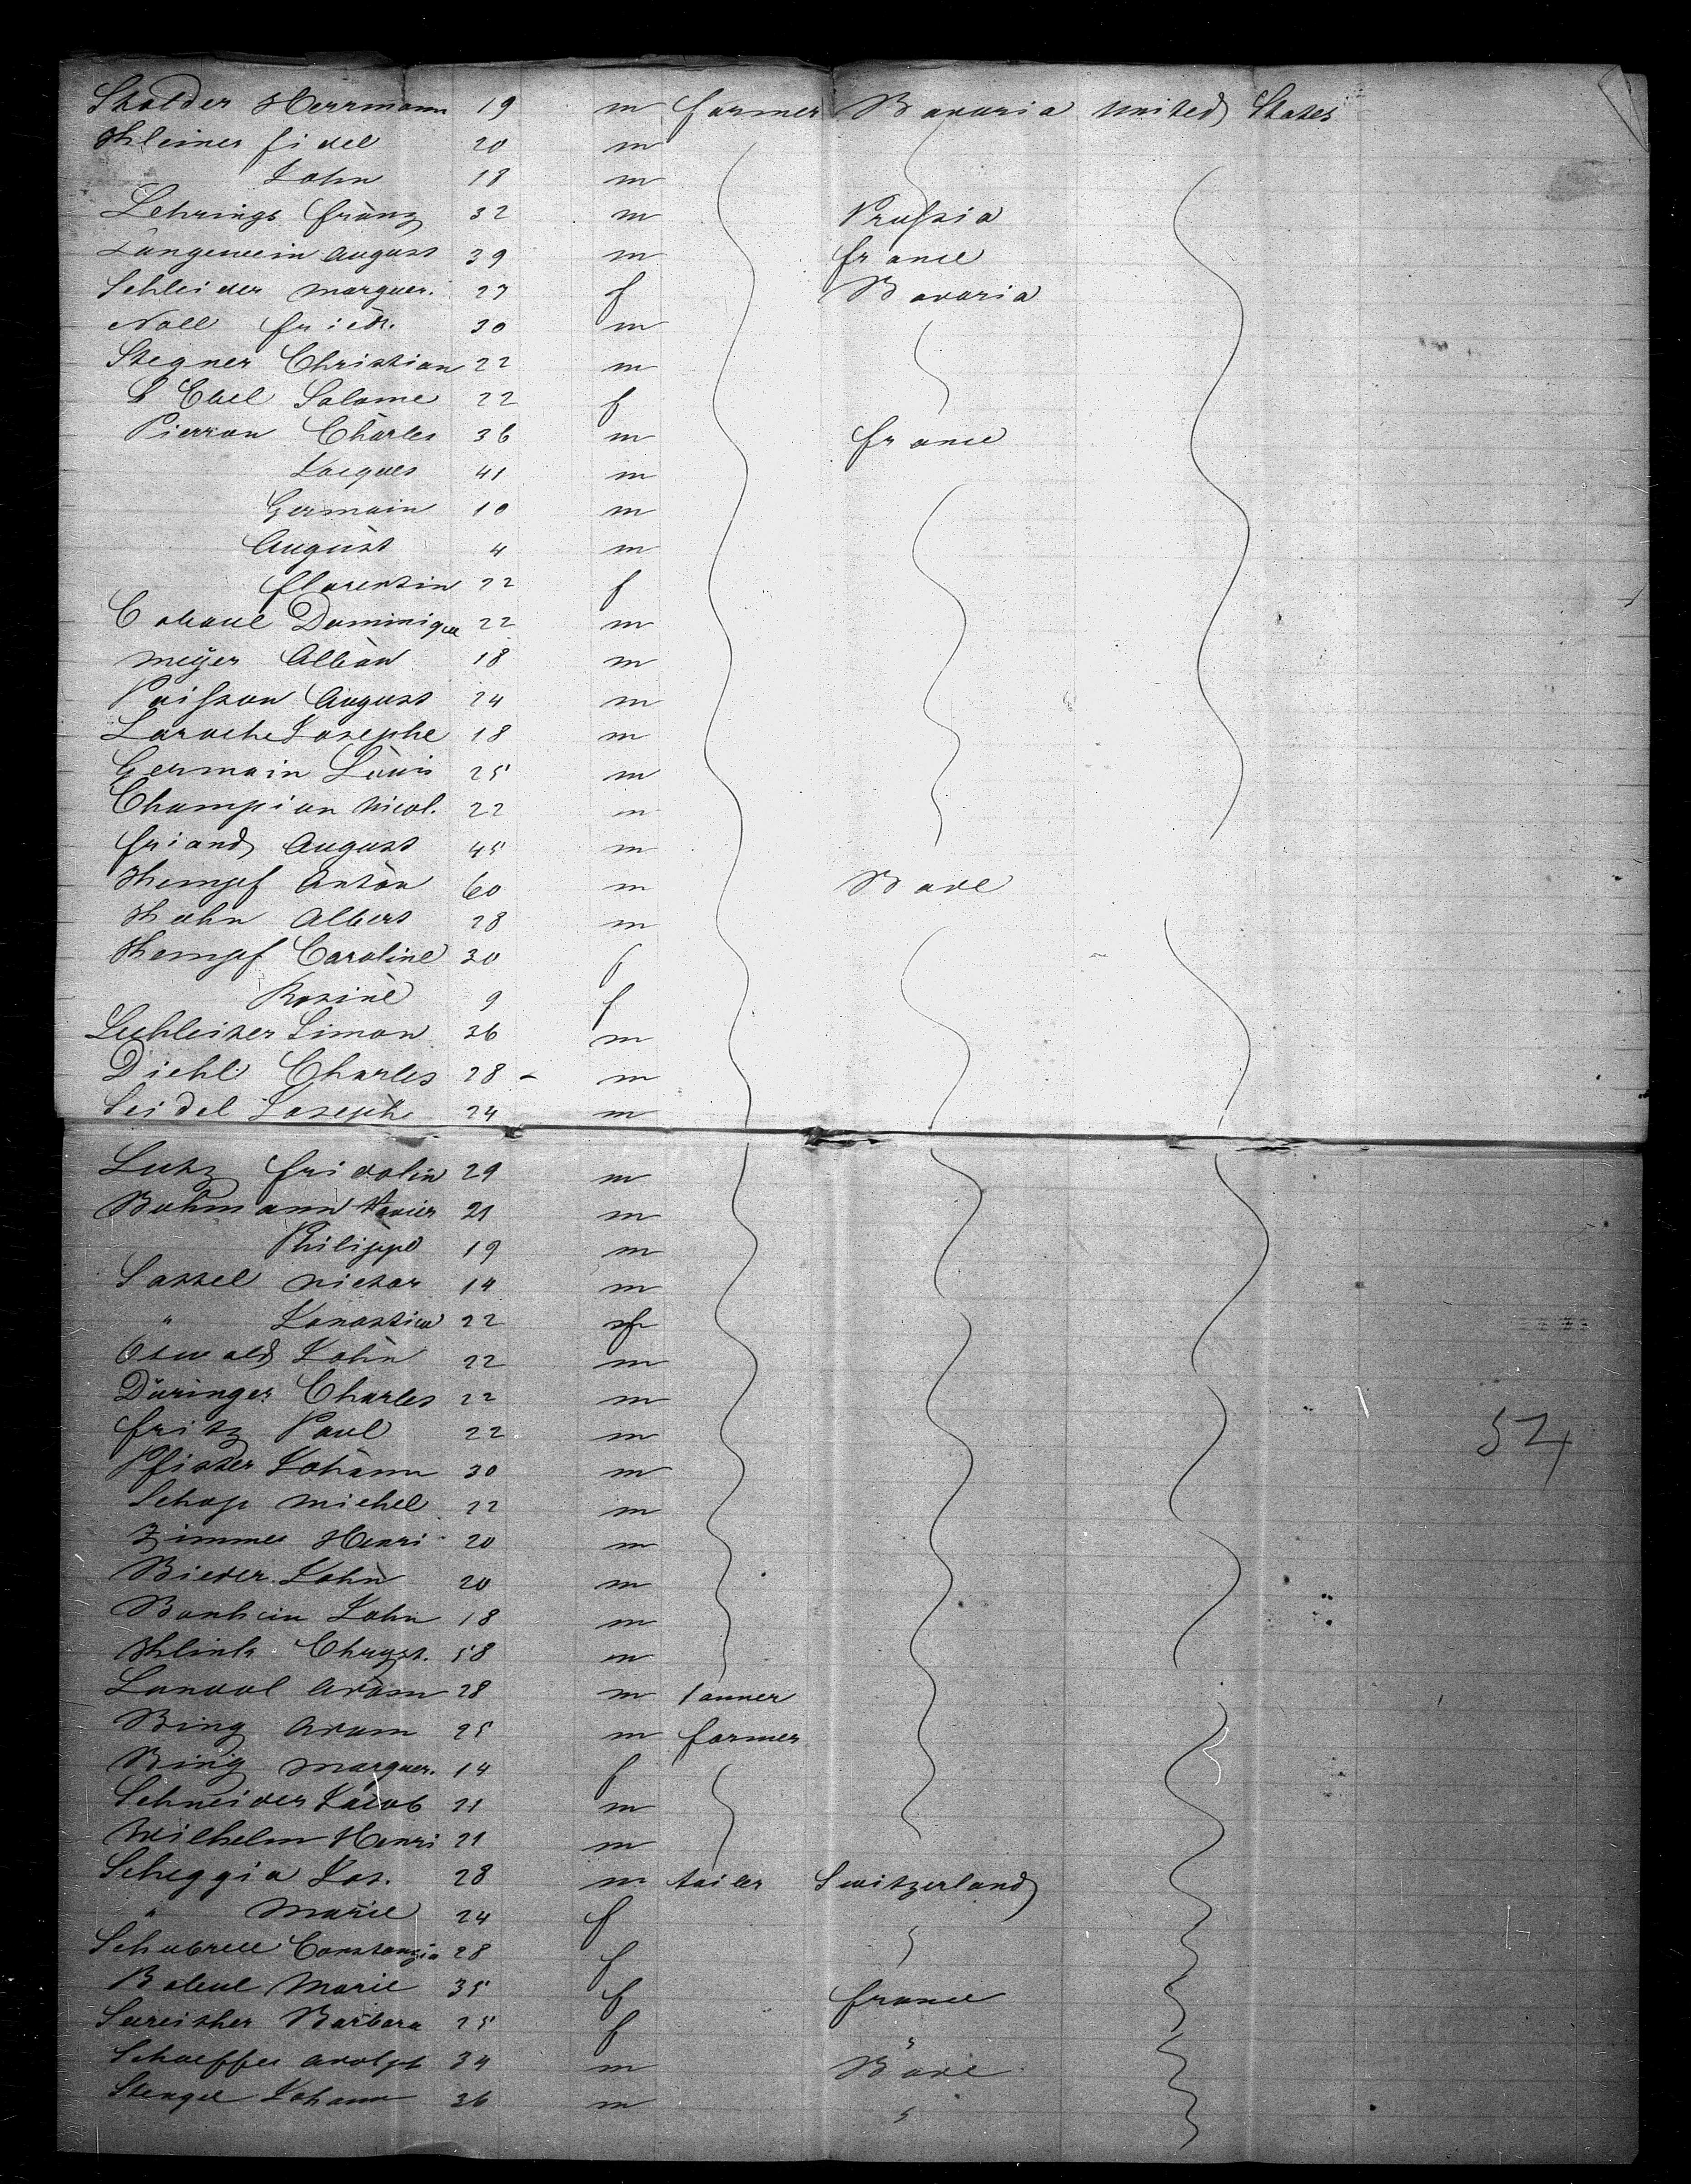 Skolder Herrmann 19 m farmer Bavaria united States
Kleiner fidel 20 m
John 18 m
Lehrings franz 32 m Prussia
Langenwein August 39 m france
Schleider marguer. 27 f Bavaria
Noll friedr. 30 m
Stegner Christian 22 m
Salome 22 f
Pierron Charles 36 m france
Jacques 41 m
Germain 10 m
August 4 m
florentin 22 f
Dominique 22 m
meÿer Alban 18 m
Poisson August 24 m
Laroche Josephe 18 m
Germain Louis 25 m
Champion Nicol. 22 m
friand August 45 m
Kempf Anton 60 m Bade
Hahn Albert 28 m
Kempf Caroline 30 f
Rosine 9 f
Luhleiser Simon 36 m
Diehl Charles 28 - m
Seidel Joseph 24 m
Lutz fridolin 29 m
Bohmann Xavier 21 m
Philippe 19 m
Sattel victor 14 m
" 22 f
Oswald John 22 m
Düringer Charles 22 m
fritz Paul 22 m
Pfister Johann 30 m
Schop michel 22 m
Zimmer Henri 20 m
Bieder John 20 m
John 18 m
Klink Chryst. 58 m
Adam 28 m tanner
Bing Adam 25 m farmer
Bing marguer. 14 f
Schneider Jacob 21 m
Wilhelm Henri 21 m
Scheggia Jos. 28 m tailer Switzerland
" Marie 24 f
Constanzia 28 f
Marie 35 f france
Barbara 25 f "
Schaeffer Adolph 34 m Bade
Stengel Johann 36 m "
54